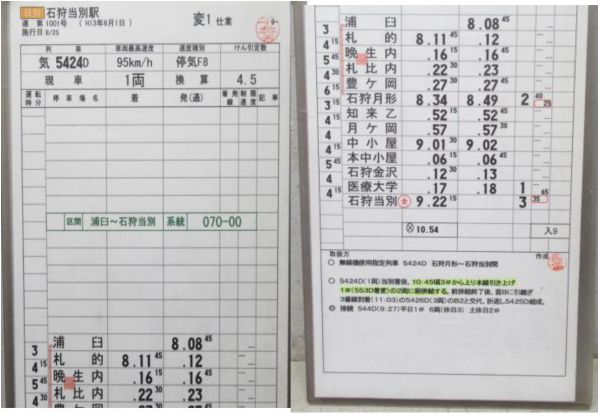 日勤 石狩当別駅 変1 仕業
運 第 1001号 ( H13年6月1日 )
施行日 8/25
列車 車両最高速度 速度種別 けん引定数
気 5424D 95km/h 停気F8
現車 1両 換算 4.5
運転時分 停車場名 着 発(通) 着発線 制限速度 記事
区間 浦臼～石狩当別 系統 070-00
浦臼 8.08 45
3 札的 8.11 45 .12
4 15 晩生内 .16 15 .16 45
5 45 札比内 .22 30 .23
4 15 豊ケ岡 .27 30 .27 45
浦臼 8.08 45
3 札的 8.11 45 .12
4 15 晩生内 .16 15 .16 45
5 45 札比内 .22 30 .23
4 30 豊ケ岡 .27 30 .27 45
石狩月形 8.34 8.49 2 40 25
知来乙 .52 15 .52 45
月ケ岡 .57 .57 30
中小屋 9.01 30 9.02
本中小屋 .06 15 .06 45
石狩金沢 .12 30 .13
医療大学 .17 .18 1 65
石狩当別 9.22 15 3 35
10.54 入9
取扱方 作成
○ 無線機使用指定列車 5424D 石狩月形～石狩当別間
○ 5424D(1両)当別着後、10:45頃3#から上り本線引き上げ
1#(553D着変)の2両に前併結する。前併結終了後、
3番線到着(11:03)の5426D(3両)のB2と交代、折返し5425D組成。
接続 544D(9:27)平日1# 6両(休日3) 土休日2#